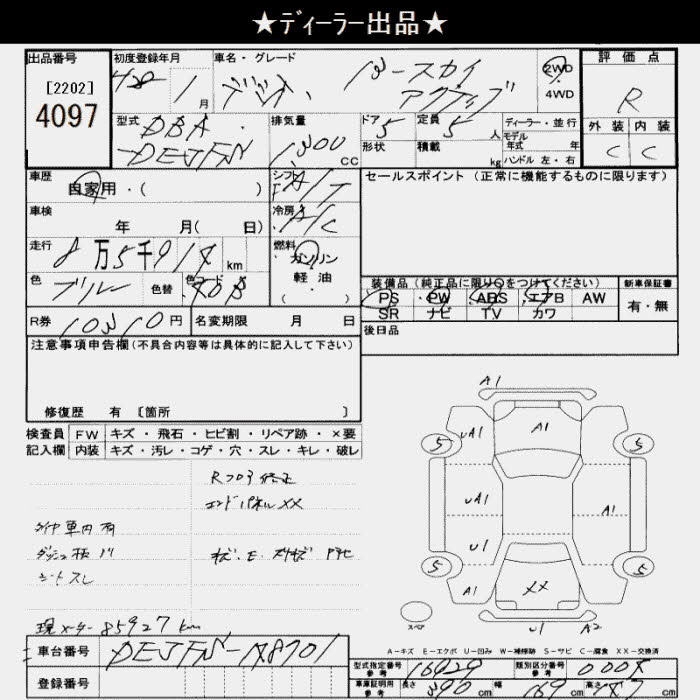 ★ディーラー出品★
出品番号
[2202]
4097
初度登録年月
1 月
車名・グレード
デミオ、 13-スカイ
アクティブ
2WD
4WD
評価点
R
外装 内装
C C
型式
DBA
DEJFS
排気量
1300 cc
ドア 5
形状
定員 5 人
積載 kg
ディーラー・並行
モデル
年式 年
ハンドル 左・右
車歴
自家用・( )
シフト
F A/T
セールスポイント (正常に機能するものに限ります)
車検
年 月( 日)
冷房
A/C
走行
8万5千91 km
燃料
ガソリン
軽油
( )
色
ブルー
色替
色コード
装備品 (純正品に限り○をつけてください)
PS PW ABS エアB AW
SR ナビ TV カワ
新車保証書
有・無
R券 10310 円
名変期限 月 日
後日品
注意事項申告欄(不具合内容等は具体的に記入して下さい)
修復歴 有 [箇所 ]
検査員 FW キズ・飛石・ヒビ割・リペア跡・×要
記入欄 内装 キズ・汚レ・コゲ・穴・スレ・キレ・破レ
Rフロア修正
エンドパネルXX
タイヤ車内有
ダッシュ板
シートスレ
現メーター 85927 km
A1
5 UA1 A1 5
UA1 A1
U1
5 A1 XX 5
スペア
U1 A2
A-キズ E-エクボ U-凹み W-補修跡 S-サビ C-腐食 XX-交換済
車台番号 DEJFS-
登録番号
型式指定番号
参考
16929
類別区分番号
参考
車庫証明用
参考
長さ 390 cm
幅 169 cm
高さ cm